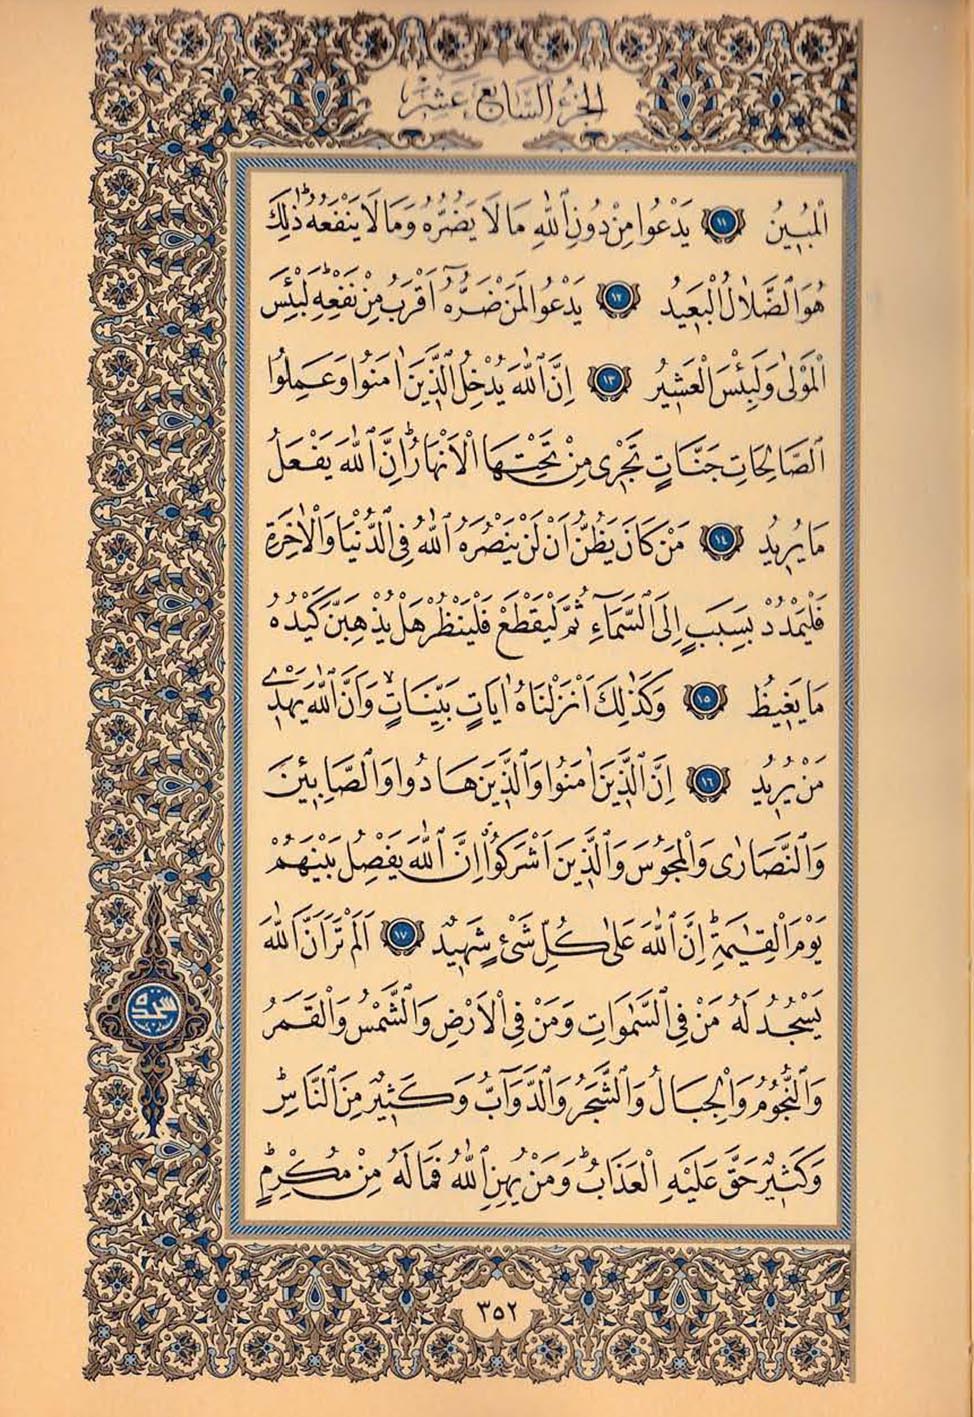 الجزء السابع عشر
الْمُبٖينُ ﴿١١﴾ يَدْعُوا مِنْ دُونِ اللّٰهِ مَا لَا يَضُرُّهُ وَمَا لَا يَنْفَعُهُؕ ذٰلِكَ
هُوَ الضَّلَالُ الْبَعٖيدُ ﴿١٢﴾ يَدْعُوا لَمَنْ ضَرُّهُٓ اَقْرَبُ مِنْ نَفْعِهٖؕ لَبِئْسَ
الْمَوْلٰى وَلَبِئْسَ الْعَشٖيرُ ﴿١٣﴾ اِنَّ اللّٰهَ يُدْخِلُ الَّذٖينَ اٰمَنُوا وَعَمِلُوا
الصَّالِحَاتِ جَنَّاتٍ تَجْرٖى مِنْ تَحْتِهَا الْاَنْهَارُؕ اِنَّ اللّٰهَ يَفْعَلُ
مَا يُرٖيدُ ﴿١٤﴾ مَنْ كَانَ يَظُنُّ اَنْ لَنْ يَنْصُرَهُ اللّٰهُ فِى الدُّنْيَا وَالْاٰخِرَةِ
فَلْيَمْدُدْ بِسَبَبٍ اِلَى السَّمَٓاءِ ثُمَّ لْيَقْطَعْ فَلْيَنْظُرْ هَلْ يُذْهِبَنَّ كَيْدُهُ
مَا يَغٖيظُ ﴿١٥﴾ وَكَذٰلِكَ اَنْزَلْنَاهُ اٰيَاتٍ بَيِّنَاتٍۙ وَاَنَّ اللّٰهَ يَهْدٖى
مَنْ يُرٖيدُ ﴿١٦﴾ اِنَّ الَّذٖينَ اٰمَنُوا وَالَّذٖينَ هَادُوا وَالصَّابِـٖٔينَ
وَالنَّصَارٰى وَالْمَجُوسَ وَالَّذٖينَ اَشْرَكُواۗ اِنَّ اللّٰهَ يَفْصِلُ بَيْنَهُمْ
يَوْمَ الْقِيٰمَةِؕ اِنَّ اللّٰهَ عَلٰى كُلِّ شَىْءٍ شَهٖيدٌ ﴿١٧﴾ اَلَمْ تَرَ اَنَّ اللّٰهَ
يَسْجُدُ لَهُ مَنْ فِى السَّمٰوَاتِ وَمَنْ فِى الْاَرْضِ وَالشَّمْسُ وَالْقَمَرُ
وَالنُّجُومُ وَالْجِبَالُ وَالشَّجَرُ وَالدَّوَٓابُّ وَكَثٖيرٌ مِنَ النَّاسِؕ
وَكَثٖيرٌ حَقَّ عَلَيْهِ الْعَذَابُؕ وَمَنْ يُهِنِ اللّٰهُ فَمَا لَهُ مِنْ مُكْرِمٍؕ
سجده
٣٥٢